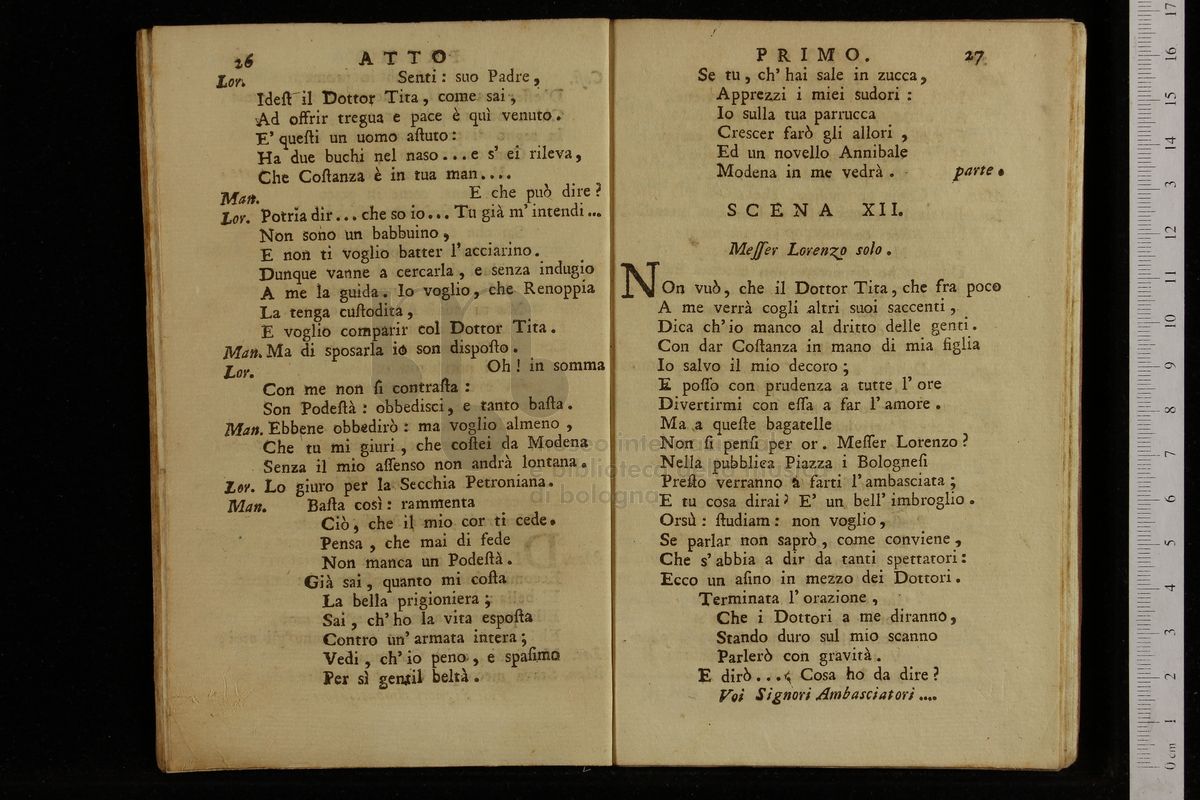 26 ATTO
Lor. Senti : suo Padre,
Ideſt il Dottor Tita, come sai,
Ad offrir tregua e pace è quì venuto.
E' queſti un uomo aſtuto:
Ha due buchi nel naso...e s' ei rileva,
Che Coſtanza è in tua man....
Man. E che può dire?
Lor. Potria dir... che so io... Tu già m' intendi...
Non sono un babbuino,
E non ti voglio batter l' acciarino.
Dunque vanne a cercarla, e senza indugio
A me la guida. Io voglio, che Renoppia
La tenga cuſtodita,
E voglio comparir col Dottor Tita.
Man. Ma di sposarla io son dispoſto.
Lor. Oh! in somma
Con me non ſi contraſta:
Son Podeſtà: obbedisci, e tanto baſta.
Man. Ebbene obbedirò: ma voglio almeno,
Che tu mi giuri, che coſtei da Modena
Senza il mio aſſenso non andrà lontana.
Lor. Lo giuro per la Secchia Petroniana.
Man. Baſta così: rammenta
Ciò, che il mio cor ti cede.
Pensa, che mai di fede
Non manca un Podeſtà.
Già sai, quanto mi coſta
La bella prigioniera;
Sai, ch' ho la vita espoſta
Contro un' armata intera;
Vedi, ch' io peno, e spaſimo
Per sì gentil beltà.
PRIMO. 27
Se tu, ch' hai sale in zucca,
Apprezzi i miei sudori:
Io sulla tua parrucca
Crescer farò gli allori,
Ed un novello Annibale
Modena in me vedrà. parte.
SCENA XII.
Meſſer Lorenzo solo.
NOn vuò, che il Dottor Tita, che fra poco
A me verrà cogli altri suoi saccenti,
Dica ch' io manco al dritto delle genti.
Con dar Coſtanza in mano di mia figlia
Io salvo il mio decoro;
E poſſo con prudenza a tutte l' ore
Divertirmi con eſſa a far l' amore.
Ma a queſte bagatelle
Non ſi penſi per or. Meſſer Lorenzo?
Nella pubblica Piazza i Bologneſi
Preſto verranno a farti l' ambasciata;
E tu cosa dirai? E' un bell' imbroglio.
Orsù: ſtudiam: non voglio,
Se parlar non saprò, come conviene,
Che s' abbia a dir da tanti spettatori:
Ecco un aſino in mezzo dei Dottori.
Terminata l' orazione,
Che i Dottori a me diranno,
Stando duro sul mio scanno
Parlerò con gravità.
E dirò.... Cosa ho da dire?
Voi Signori Ambasciatori....
museo internazionale
e biblioteca della musica
di bologna
0 cm 1 2 3 4 5 6 7 8 9 10 11 12 13 14 15 16 17